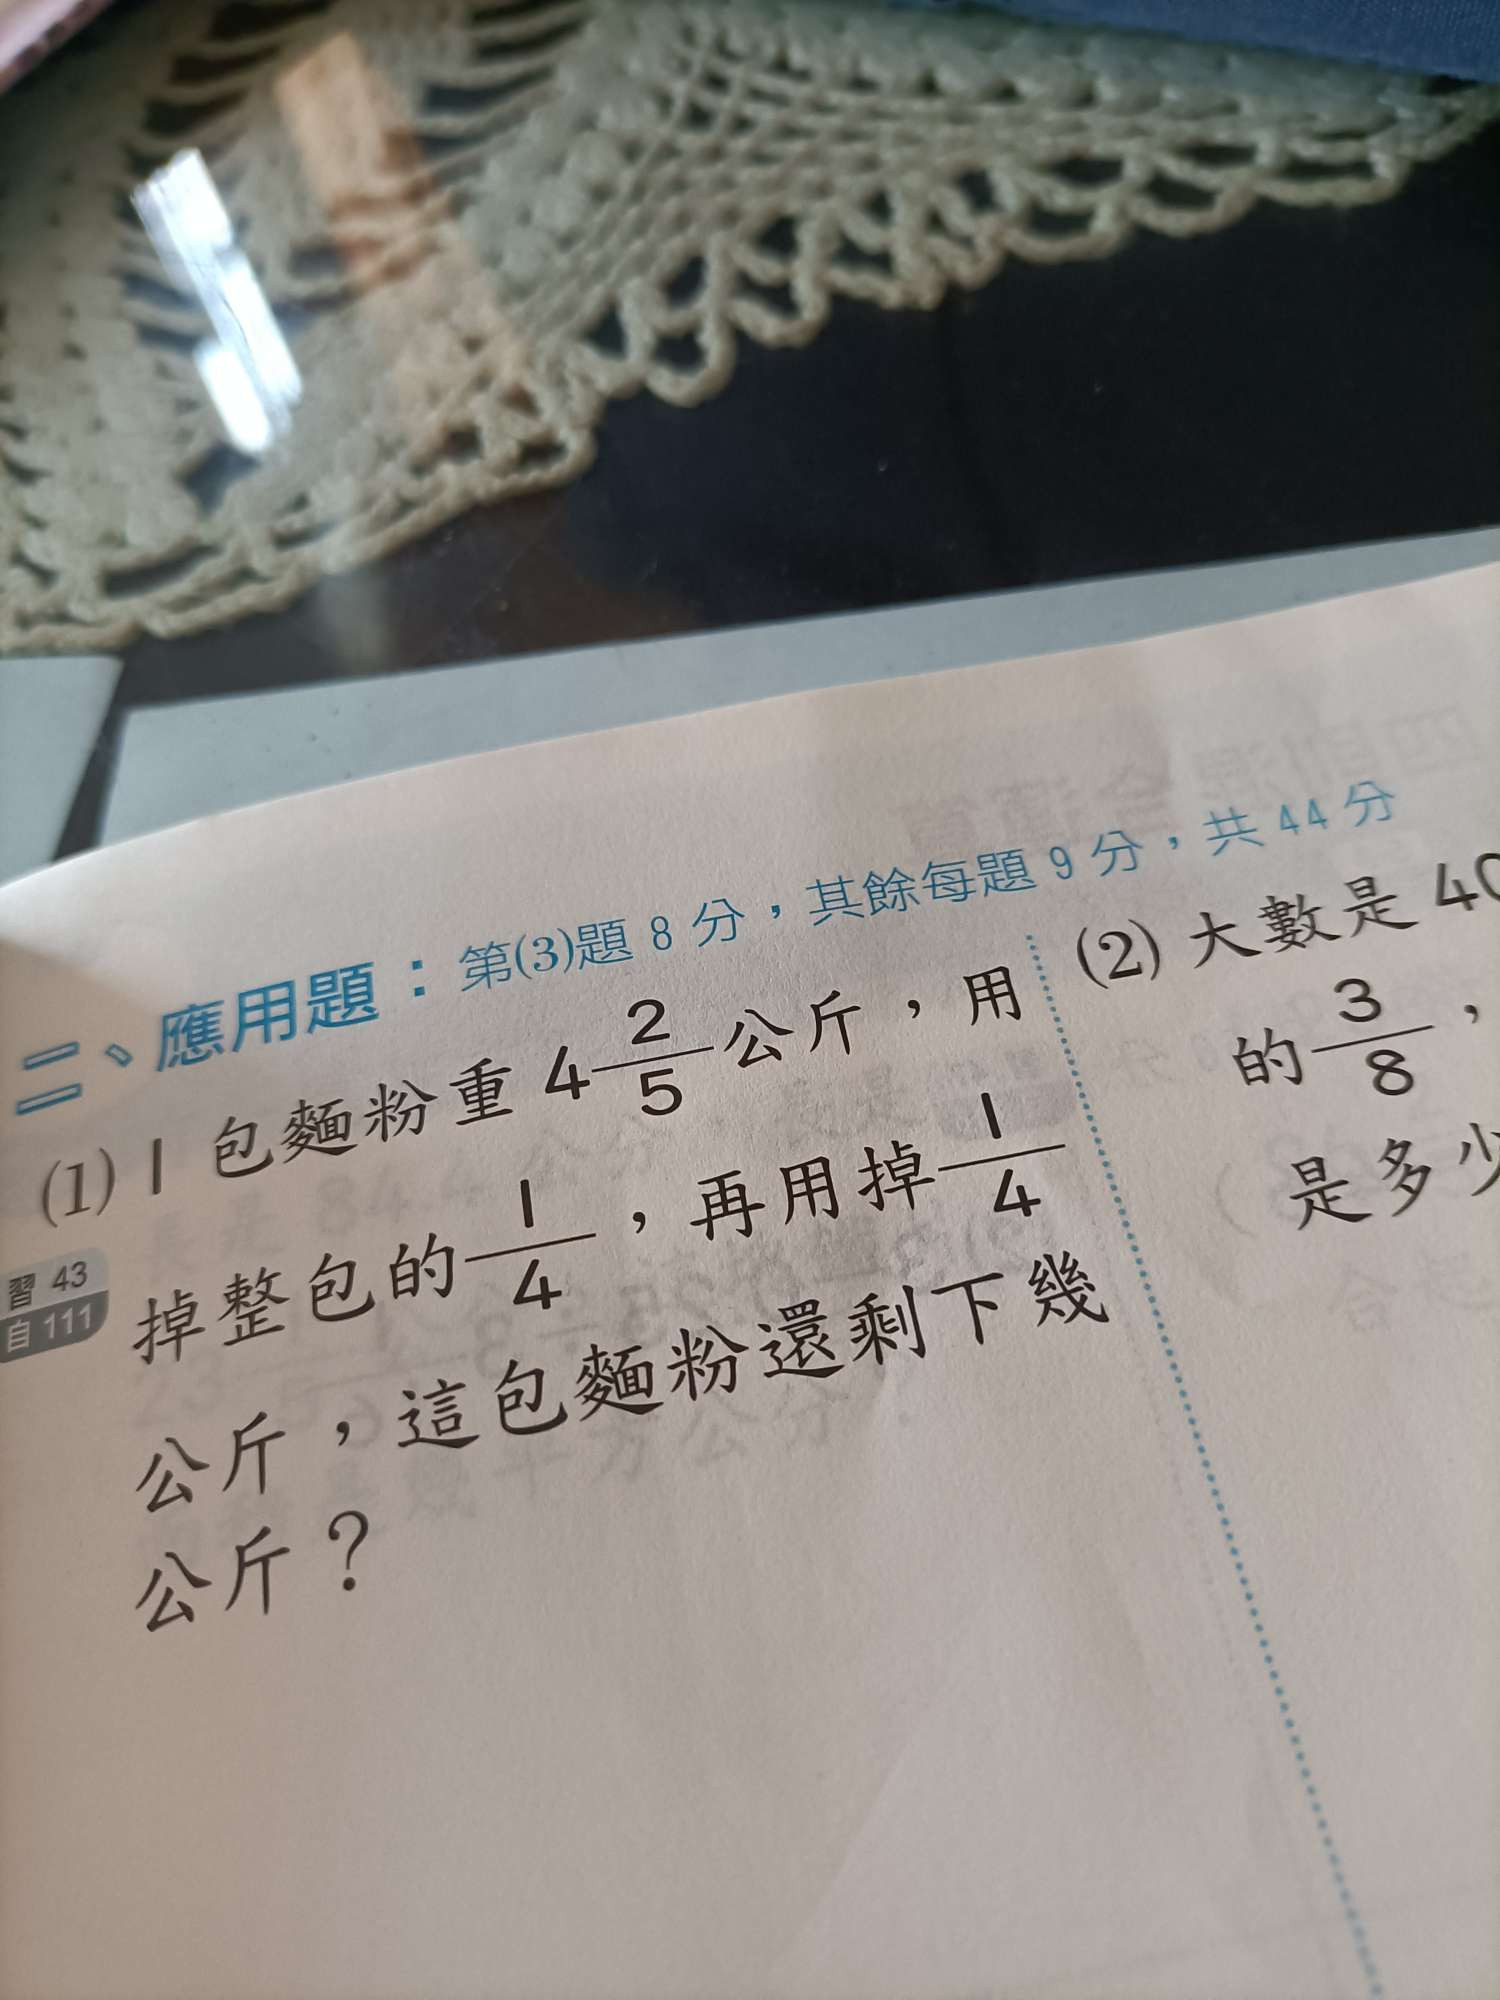 二、應用題：第(3)題 8 分，其餘每題 9 分，共 44 分
(1) 1 包麵粉重 4 2/5 公斤，用
掉整包的 1/4，再用掉 1/4
公斤，這包麵粉還剩下幾
公斤？
習 43
自 111
(2) 大數是 40
的 3/8，
是多少